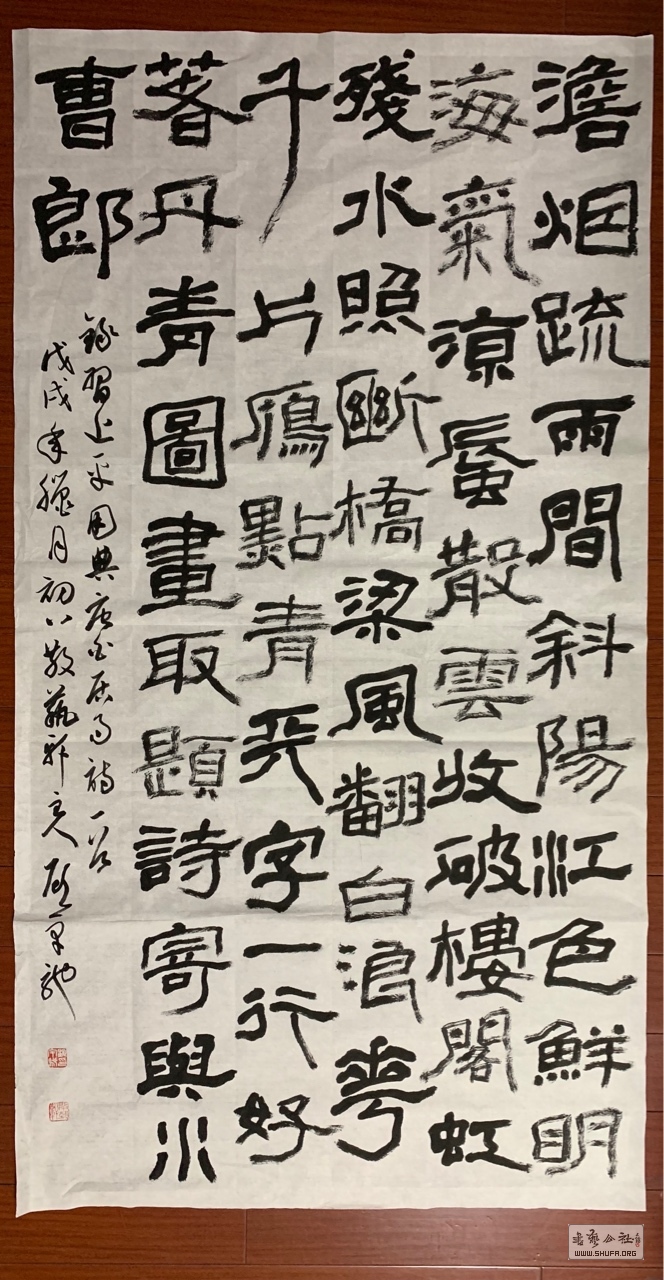 澹烟疏雨間斜陽江色鮮明
海氣涼蜃散雲收破樓閣虹
殘水照斷橋梁風翻白浪花
千片鴈點青天字一行好
著丹青圖畫取題詩寄與水
曹郎
唐白居易詩一首
戊戌年臘月初八
書藝公社
WWW.SHUFA.ORG